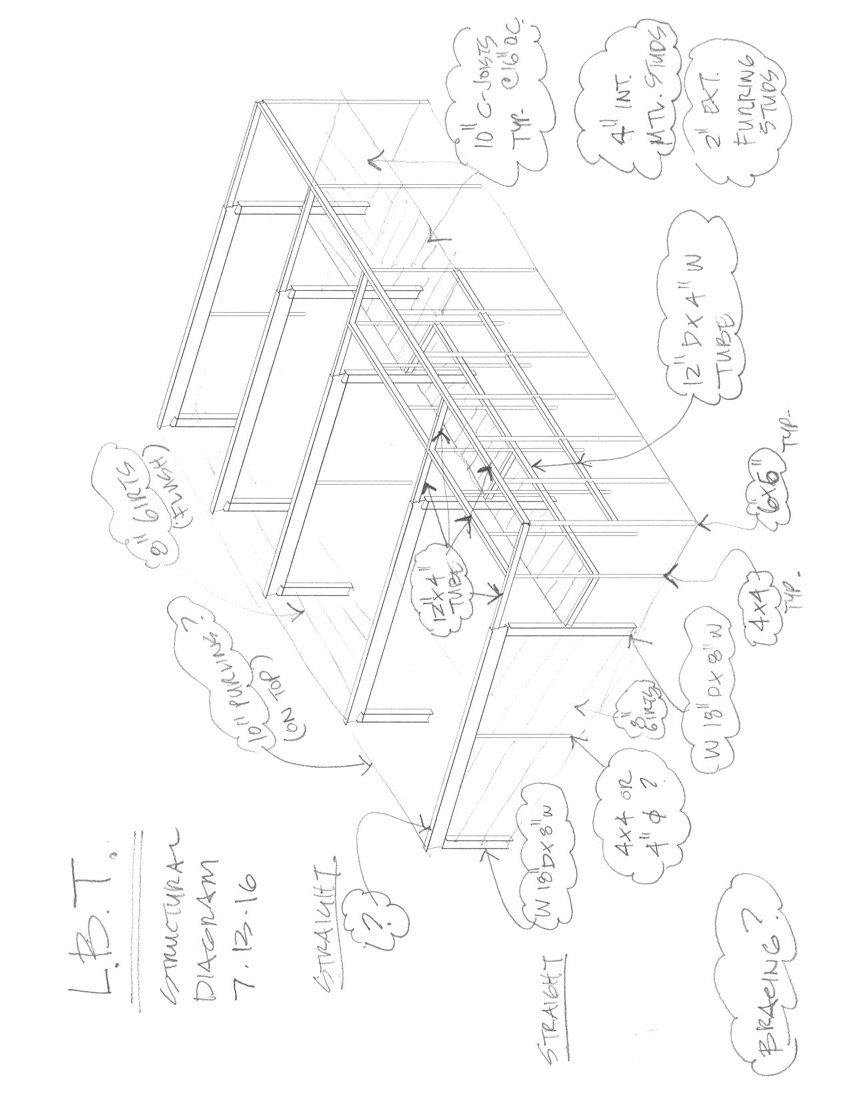 L.B.T.
STRUCTURAL
DIAGRAM
7.13.16
STRAIGHT.
STRAIGHT
BRACING?
L?
10" PURLINS?
(ON TOP)
8" GIRTS
(FLUSH)
W 18"D X 8"W
4X4 OR
4" ϕ ?
8"
GIRTS
W 18"D X 8"W
12"X4"
TUBE
4X4
TYP.
6X6"
TYP.
12"D X 4"W
TUBE
10" C-JOISTS
TYP. @16"OC.
4" INT.
MTL. STUDS
2" EXT.
FURRING
STUDS